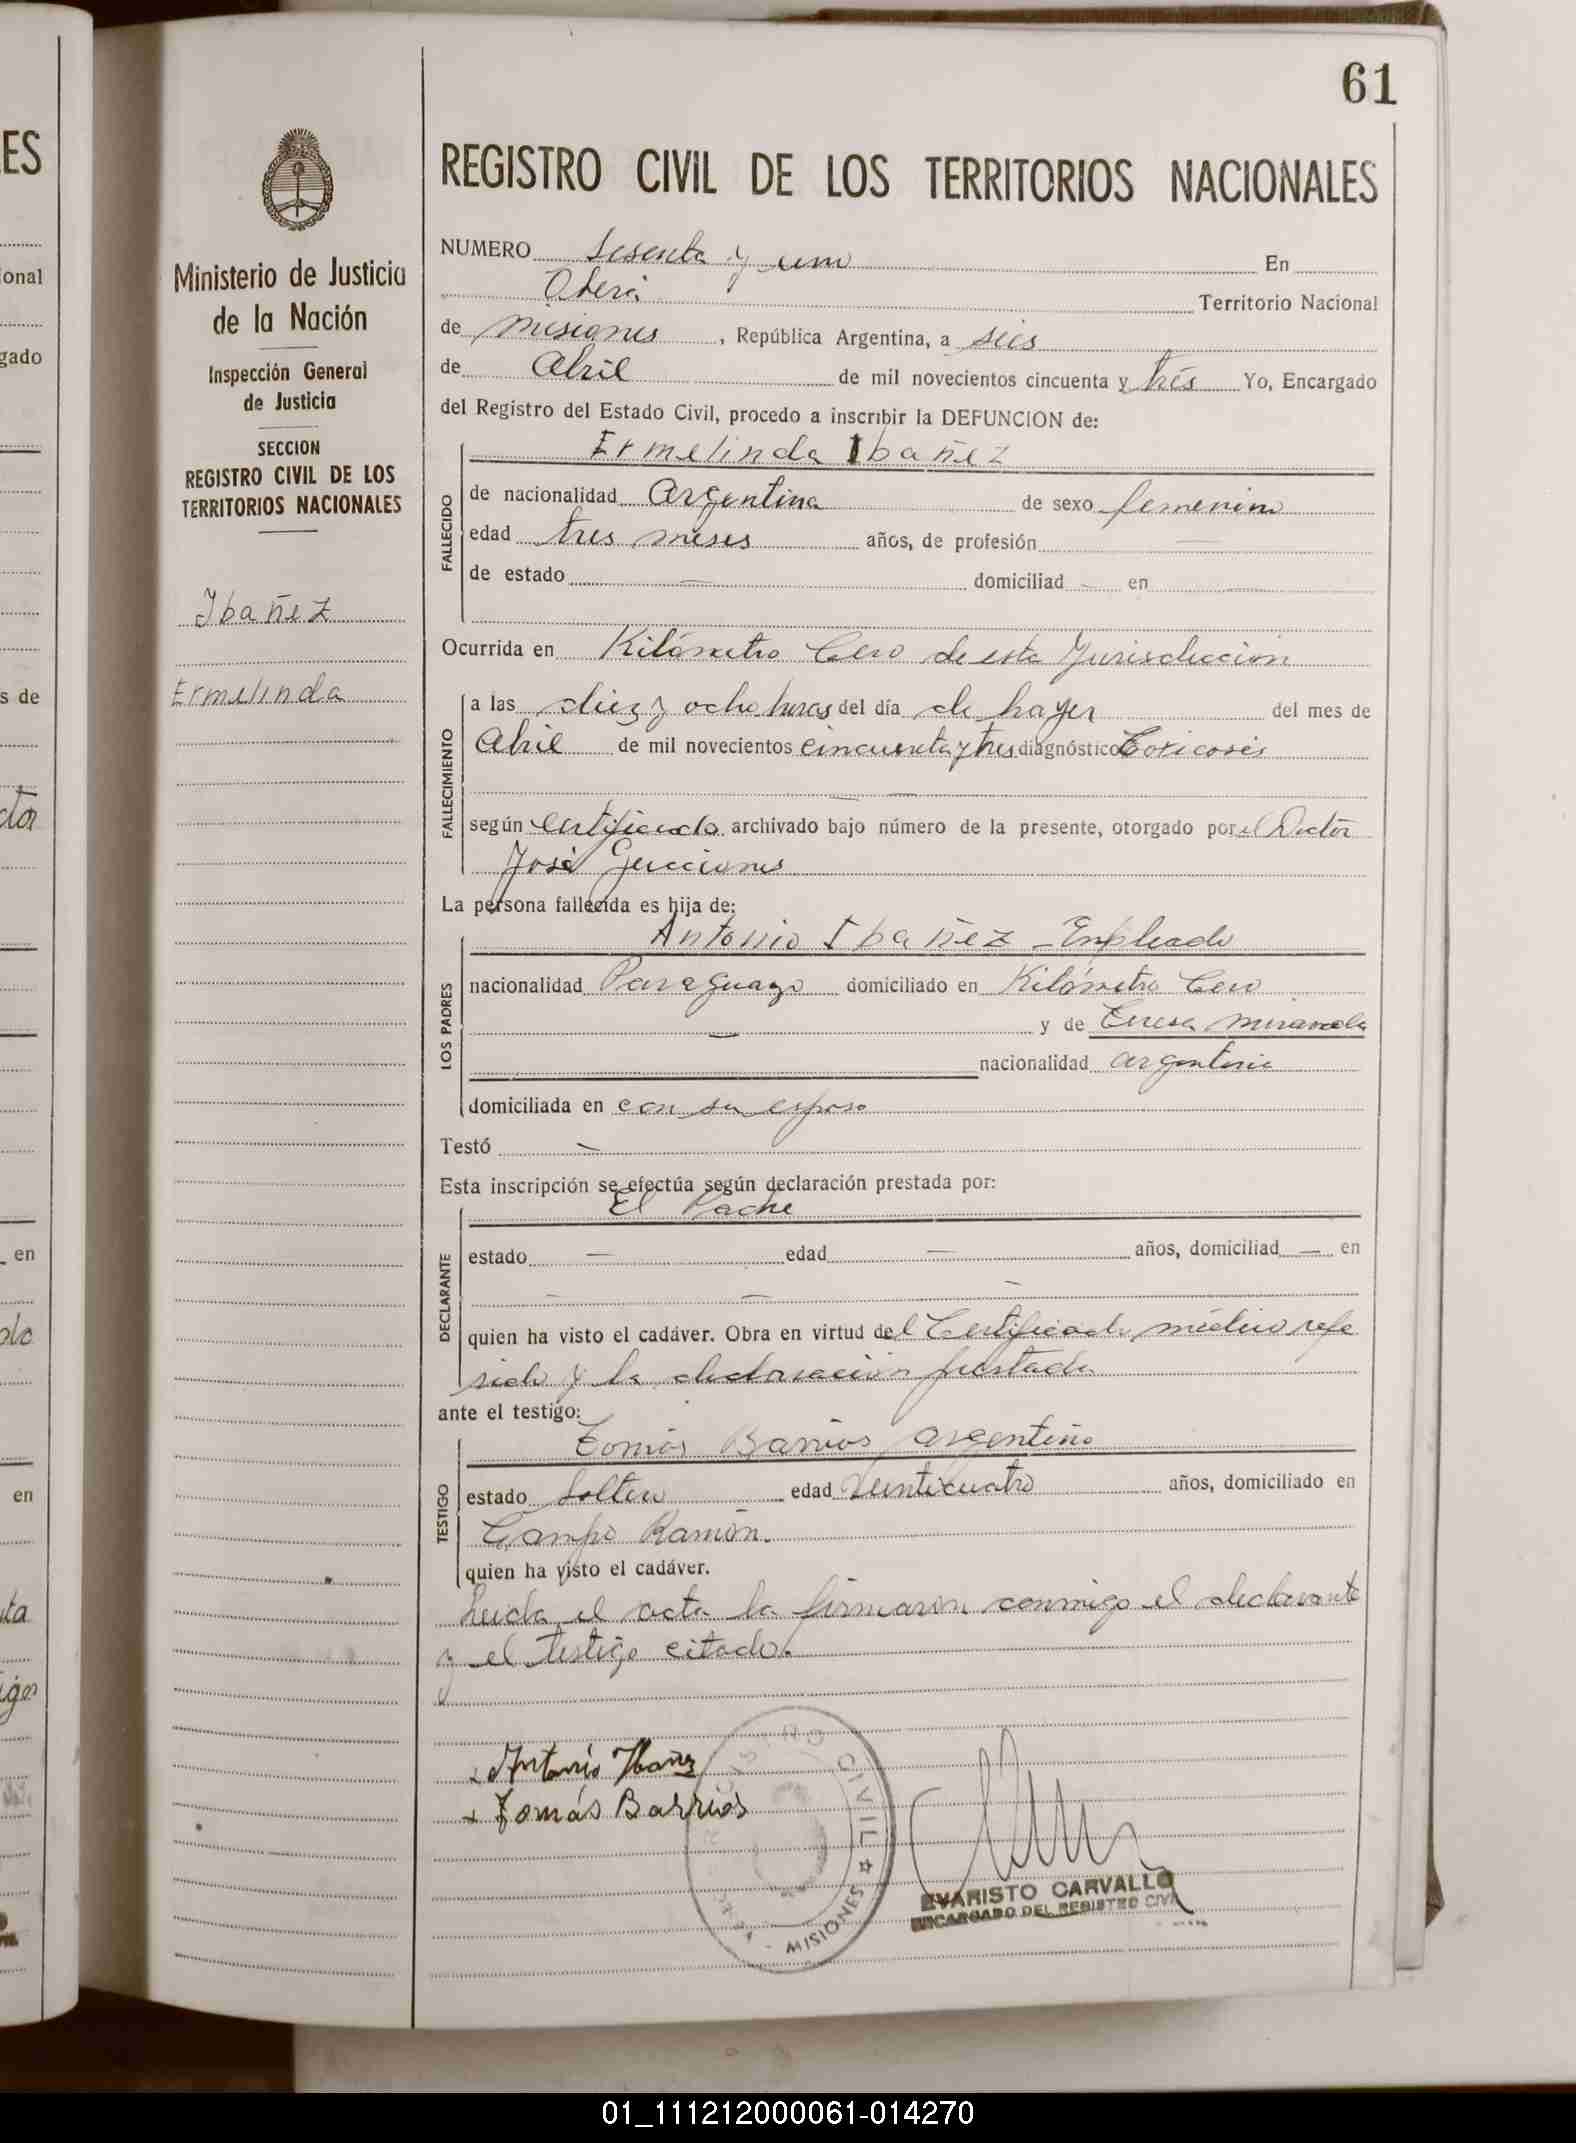 61
ES
REGISTRO CIVIL DE LOS TERRITORIOS NACIONALES
Ministerio de Justicia
de la Nación
Inspección General
de Justicia
SECCION
REGISTRO CIVIL DE LOS
TERRITORIOS NACIONALES
Ibañez
Ermelinda
NUMERO Sesenta y uno En
Oberá Territorio Nacional
de Misiones, República Argentina, a seis
de Abril de mil novecientos cincuenta y trés Yo, Encargado
del Registro del Estado Civil, procedo a inscribir la DEFUNCION de:
Ermelinda Ibañez
FALLECIDO
de nacionalidad Argentina de sexo femenino
edad tres meses años, de profesión —
de estado — domiciliad — en —
Ocurrida en Kilómetro Cero de esta Jurisdiccion
FALLECIMIENTO
a las diez y ocho horas del día de hayer del mes de
Abril de mil novecientos cincuenta y tres diagnóstico Toxicosis
— —
según certificado archivado bajo número de la presente, otorgado por el Doctor
José
La persona fallecida es hija de:
LOS PADRES
Antonio Ibañez - Empleado
nacionalidad Paraguayo domiciliado en Kilómetro Cero
— y de Teresa Miranda
nacionalidad argentina
domiciliada en con su esposo
Testó —
Esta inscripción se efectúa según declaración prestada por:
DECLARANTE
El Padre
estado — edad — años, domiciliad — en
— — —
quien ha visto el cadáver. Obra en virtud del Certificado médico refe
rido y la declaración prestada
ante el testigo:
TESTIGO
Tomás Barrios argentino
estado Soltero edad Veinticuatro años, domiciliado en
Campo Ramón.
quien ha visto el cadáver.
Leida el acta la firmaron conmigo el declarante
y el testigo citado.
x Antonio Ibañez
x Tomás Barrios
REGISTRO CIVIL ☆ MISIONES
EVARISTO CARVALLO
ENCARGADO DEL REGISTRO CIVIL
01_111212000061-014270